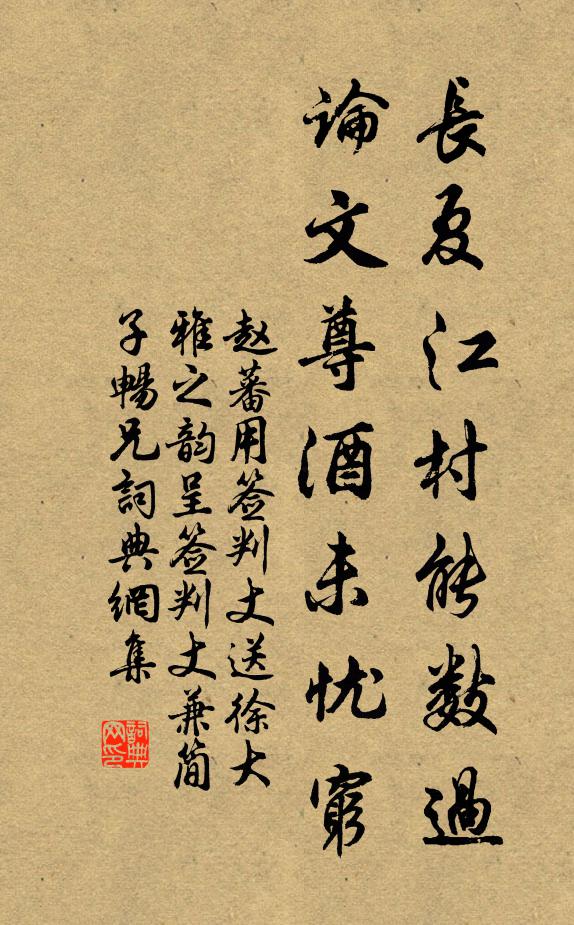 長夏江村能數過
論文尊酒未忧窮
赵蕃用签判丈送徐大
雅之韵呈签判丈兼简
子暢兄詞典網集
詞典
网印